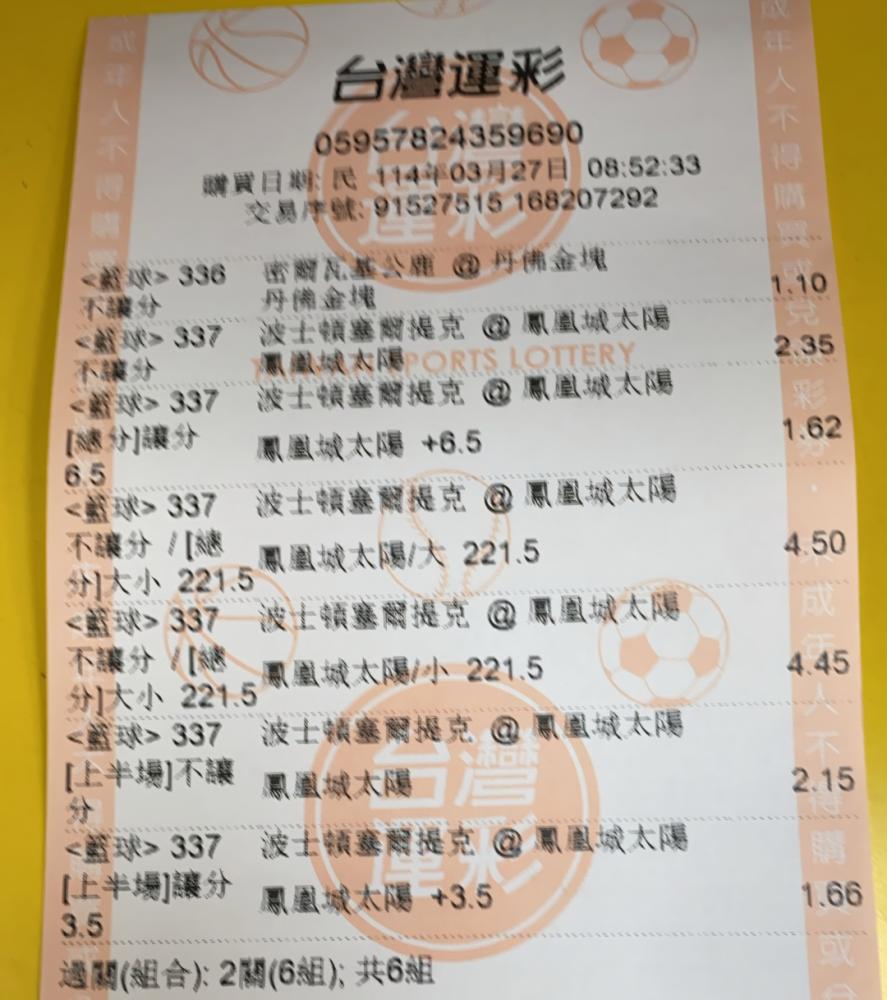 台灣運彩
05957824359690
購買日期: 民 114年03月27日 08:52:33
交易序號: 91527515 168207292
<籃球> 336 密爾瓦基公鹿 @ 丹佛金塊
不讓分 丹佛金塊 1.10
<籃球> 337 波士頓塞爾提克 @ 鳳凰城太陽
不讓分 鳳凰城太陽 2.35
TAIWAN SPORTS LOTTERY
<籃球> 337 波士頓塞爾提克 @ 鳳凰城太陽
[總分]讓分 鳳凰城太陽 +6.5 1.62
6.5
<籃球> 337 波士頓塞爾提克 @ 鳳凰城太陽
不讓分 / [總 鳳凰城太陽/大 221.5 4.50
分]大小 221.5
<籃球> 337 波士頓塞爾提克 @ 鳳凰城太陽
不讓分 / [總 鳳凰城太陽/小 221.5 4.45
分]大小 221.5
<籃球> 337 波士頓塞爾提克 @ 鳳凰城太陽
[上半場]不讓 鳳凰城太陽 2.15
分
<籃球> 337 波士頓塞爾提克 @ 鳳凰城太陽
[上半場]讓分 鳳凰城太陽 +3.5 1.66
3.5
過關(組合): 2關(6組); 共6組
台灣運彩
台灣運彩
成年人不得購
成年人不得購買或兌
成年人不得購買或